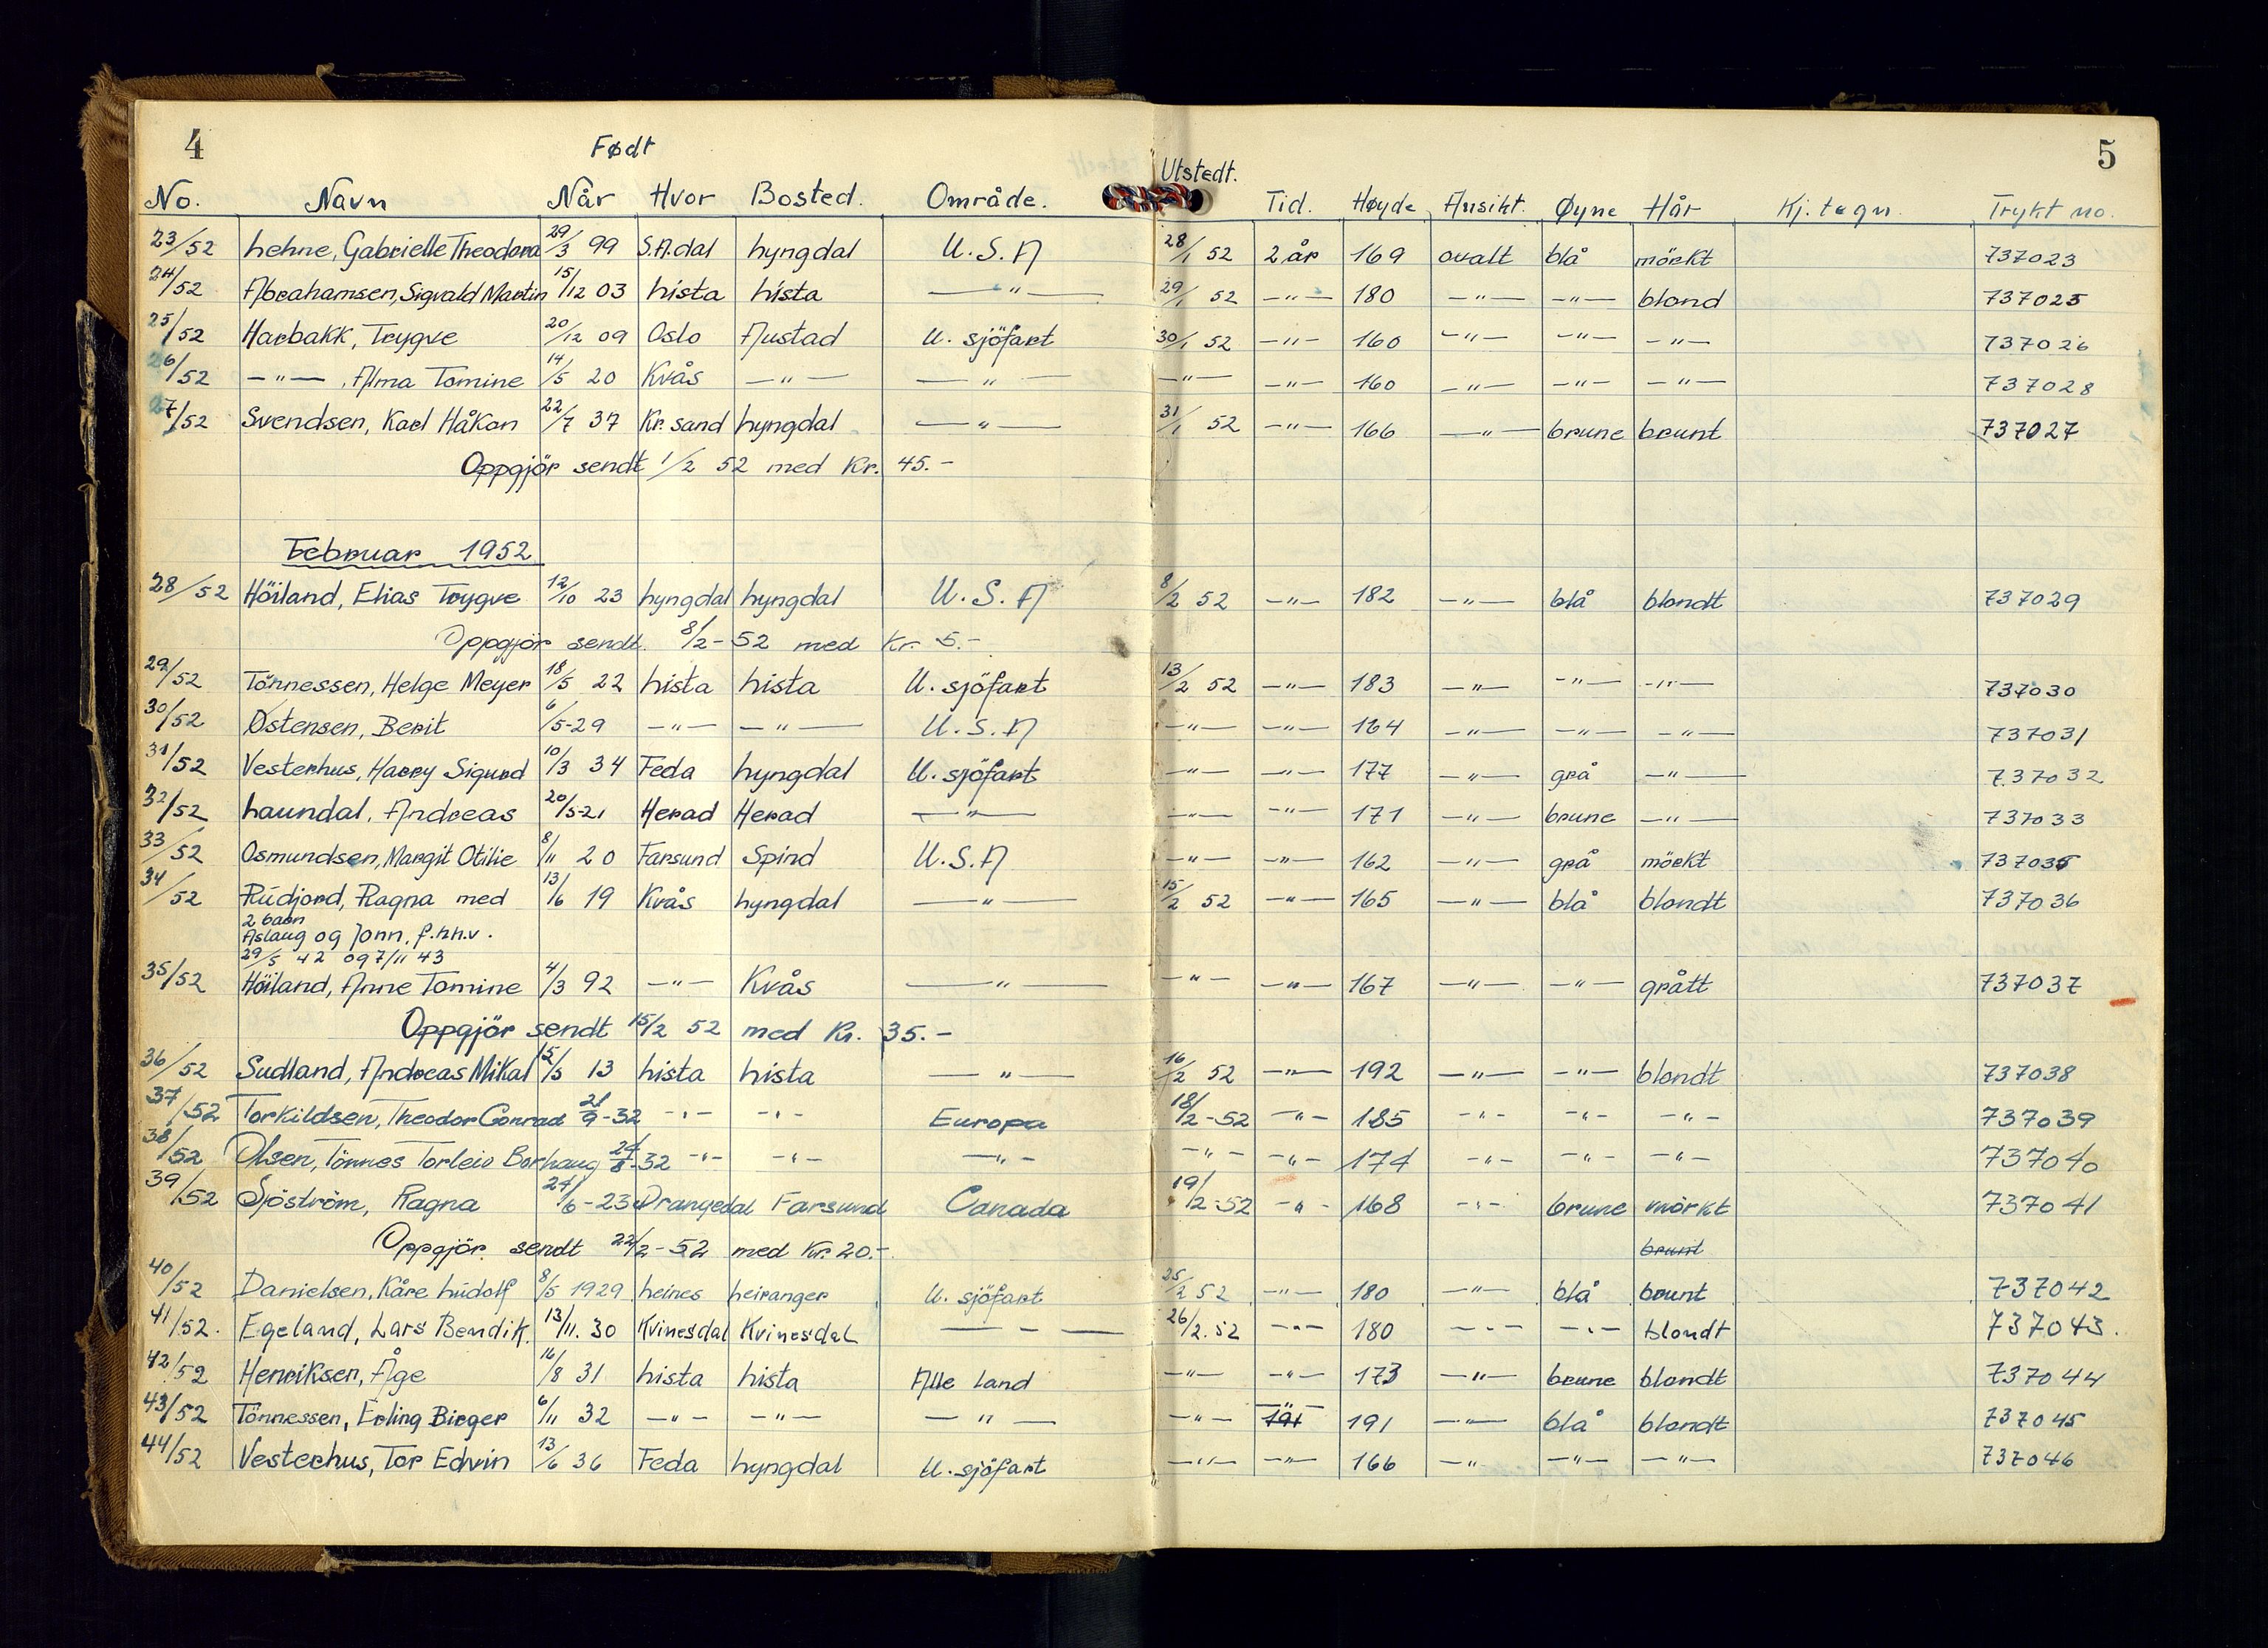 4
5
Født
Utstedt.
No. Navn Når Hvor Bosted. Område. Tid. Høyde Ansikt. Øyne Hår Kj. tegn. Trykt no.
23/52 Lehne, Gabrielle Theodora 29/3 99 S.A.dal Lyngdal U.S.A 28/1 52 2 år 169 ovalt blå mörkt 737023
24/52 Abrahamsen, Sigvald Martin 15/12 03 Lista Lista —"— 29/1 52 —"— 180 —"— —"— blond 737025
25/52 Harbakk, Trygve 20/12 09 Oslo Austad U. sjöfart 30/1 52 —"— 160 —"— —"— —"— 737026
26/52 —"—, Alma Tomine 14/5 20 Kvås —"— —"— —"— —"— 160 —"— —"— —"— 737028
27/52 Svendsen, Karl Håkon 22/7 37 Kr.sand Lyngdal —"— 31/1 52 —"— 166 —"— brune brunt 737027
Oppgjör sendt 1/2 52 med Kr. 45.-
Februar 1952
28/52 Höiland, Elias Trygve 12/10 23 Lyngdal Lyngdal U.S.A 8/2 52 —"— 182 —"— blå blondt 737029
Oppgjör sendt. 8/2-52 med Kr. 5.-
29/52 Tönnessen, Helge Meyer 18/5 22 Lista Lista U. sjöfart 13/2 52 —"— 183 —"— —"— —"— 737030
30/52 Østensen, Berit 6/5-29 —"— —"— U.S.A —"— —"— 164 —"— —"— —"— 737031
31/52 Vesterhus, Harry Sigurd 10/3 34 Feda Lyngdal U. sjöfart —"— —"— 177 —"— grå —"— 737032
32/52 Laundal, Andreas 20/5-21 Herad Herad —"— —"— —"— 171 —"— brune —"— 737033
33/52 Osmundsen, Margit Otilie 8/11 20 Farsund Spind U.S.A —"— —"— 162 —"— grå mörkt 737035
34/52 Rúdjord, Ragna med 13/6 19 Kvås Lyngdal —"— 15/2 52 —"— 165 —"— blå blondt 737036
2 barn
Aslaug og Jonn, f.hh.v.
29/5 42 og 7/11 43
35/52 Höiland, Anne Tomine 4/3 92 —"— Kvås —"— —"— —"— 167 —"— —"— grått 737037
Oppgjör sendt 15/2 52 med Kr. 35.-
36/52 Sudland, Andreas Mikal 15/5 13 Lista Lista —"— 16/2 52 —"— 192 —"— —"— blondt 737038
37/52 Torkildsen, Theodor Conrad 21/9-32 —"— —"— Europa 18/2-52 —"— 185 —"— —"— —"— 737039
38/52 Olsen, Tönnes Torleiv Borhaug 24/8-32 —"— —"— —"— —"— —"— 174 —"— —"— —"— 737040
39/52 Sjöström, Ragna 24/6-23 Drangedal Farsund Canada 19/2-52 —"— 168 —"— brune mörkt 737041
Oppgjör sendt 22/2-52 med Kr. 20.- brunt
40/52 Danielsen, Kåre Lúdolf 8/5 1929 Leines Leiranger U. sjöfart 25/2 52 —"— 180 —"— blå brunt 737042
41/52. Egeland, Lars Bendik. 13/11. 30 Kvinesdal Kvinesdal —"— 26/2.52 —"— 180 —"— —"— blondt 737043.
42/52 Henriksen, Åge 16/8 31 Lista Lista Alle land —"— —"— 173 —"— brune blondt 737044
43/52 Tönnessen, Erling Birger 6/11 32 —"— —"— —"— —"— 191 —"— 191 —"— blå blondt 737045
44/52 Vesterhus, Tor Edvin 13/6 36 Feda Lyngdal U. sjöfart —"— —"— 166 —"— —"— —"— 737046